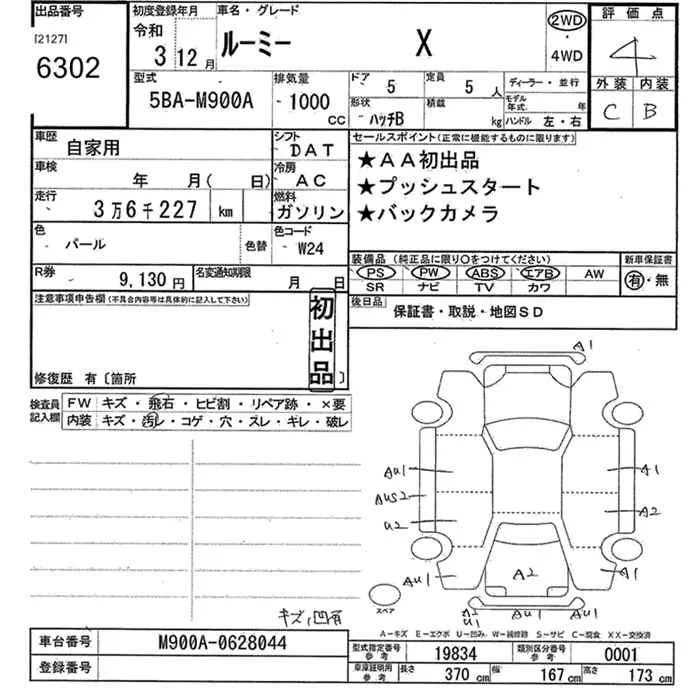 出品番号 初度登録年月 車名・グレード 評価点
[2127] 令和
6302 3年12月 ルーミー X 2WD・4WD 4
型式 排気量 ドア 定員 ディーラー・並行 外装 内装
5BA-M900A 1000 CC 5 5人 モデル年式 年 C B
形状 積載
ハッチB kg ハンドル 左・右
車歴 シフト セールスポイント(正常に機能するものに限ります)
自家用 DAT ★AA初出品
車検 冷房 ★プッシュスタート
年 月( 日) AC ★バックカメラ
走行 燃料
3万6千227 km ガソリン
色 色コード
パール 色替 W24 装備品(純正品に限り○をつけてください) 新車保証書
R券 名変通知期限 PS PW ABS エアB AW 有・無
9,130円 月 日 SR ナビ TV カワ
注意事項申告欄(不具合内容等は具体的に記入して下さい) 後日品
初出品 保証書・取説・地図SD
修復歴 有〔箇所 〕
検査員記入欄 FW キズ・飛石・ヒビ割・リペア跡・×要
内装 キズ・汚レ・コゲ・穴・スレ・キレ・破レ
A1
AU1 A1
AUS2 A2
U2
AU1 A2 AU1
スペア
A2
U1 AU1
キズ、凹有
A-キズ E-エクボ U-凹み W-補修跡 S-サビ C-腐食 XX-交換済
車台番号 M900A-0628044 型式指定番号 参考 19834 類別区分番号 参考 0001
登録番号 車庫証明用 参考 長さ 370 cm 幅 167 cm 高さ 173 cm